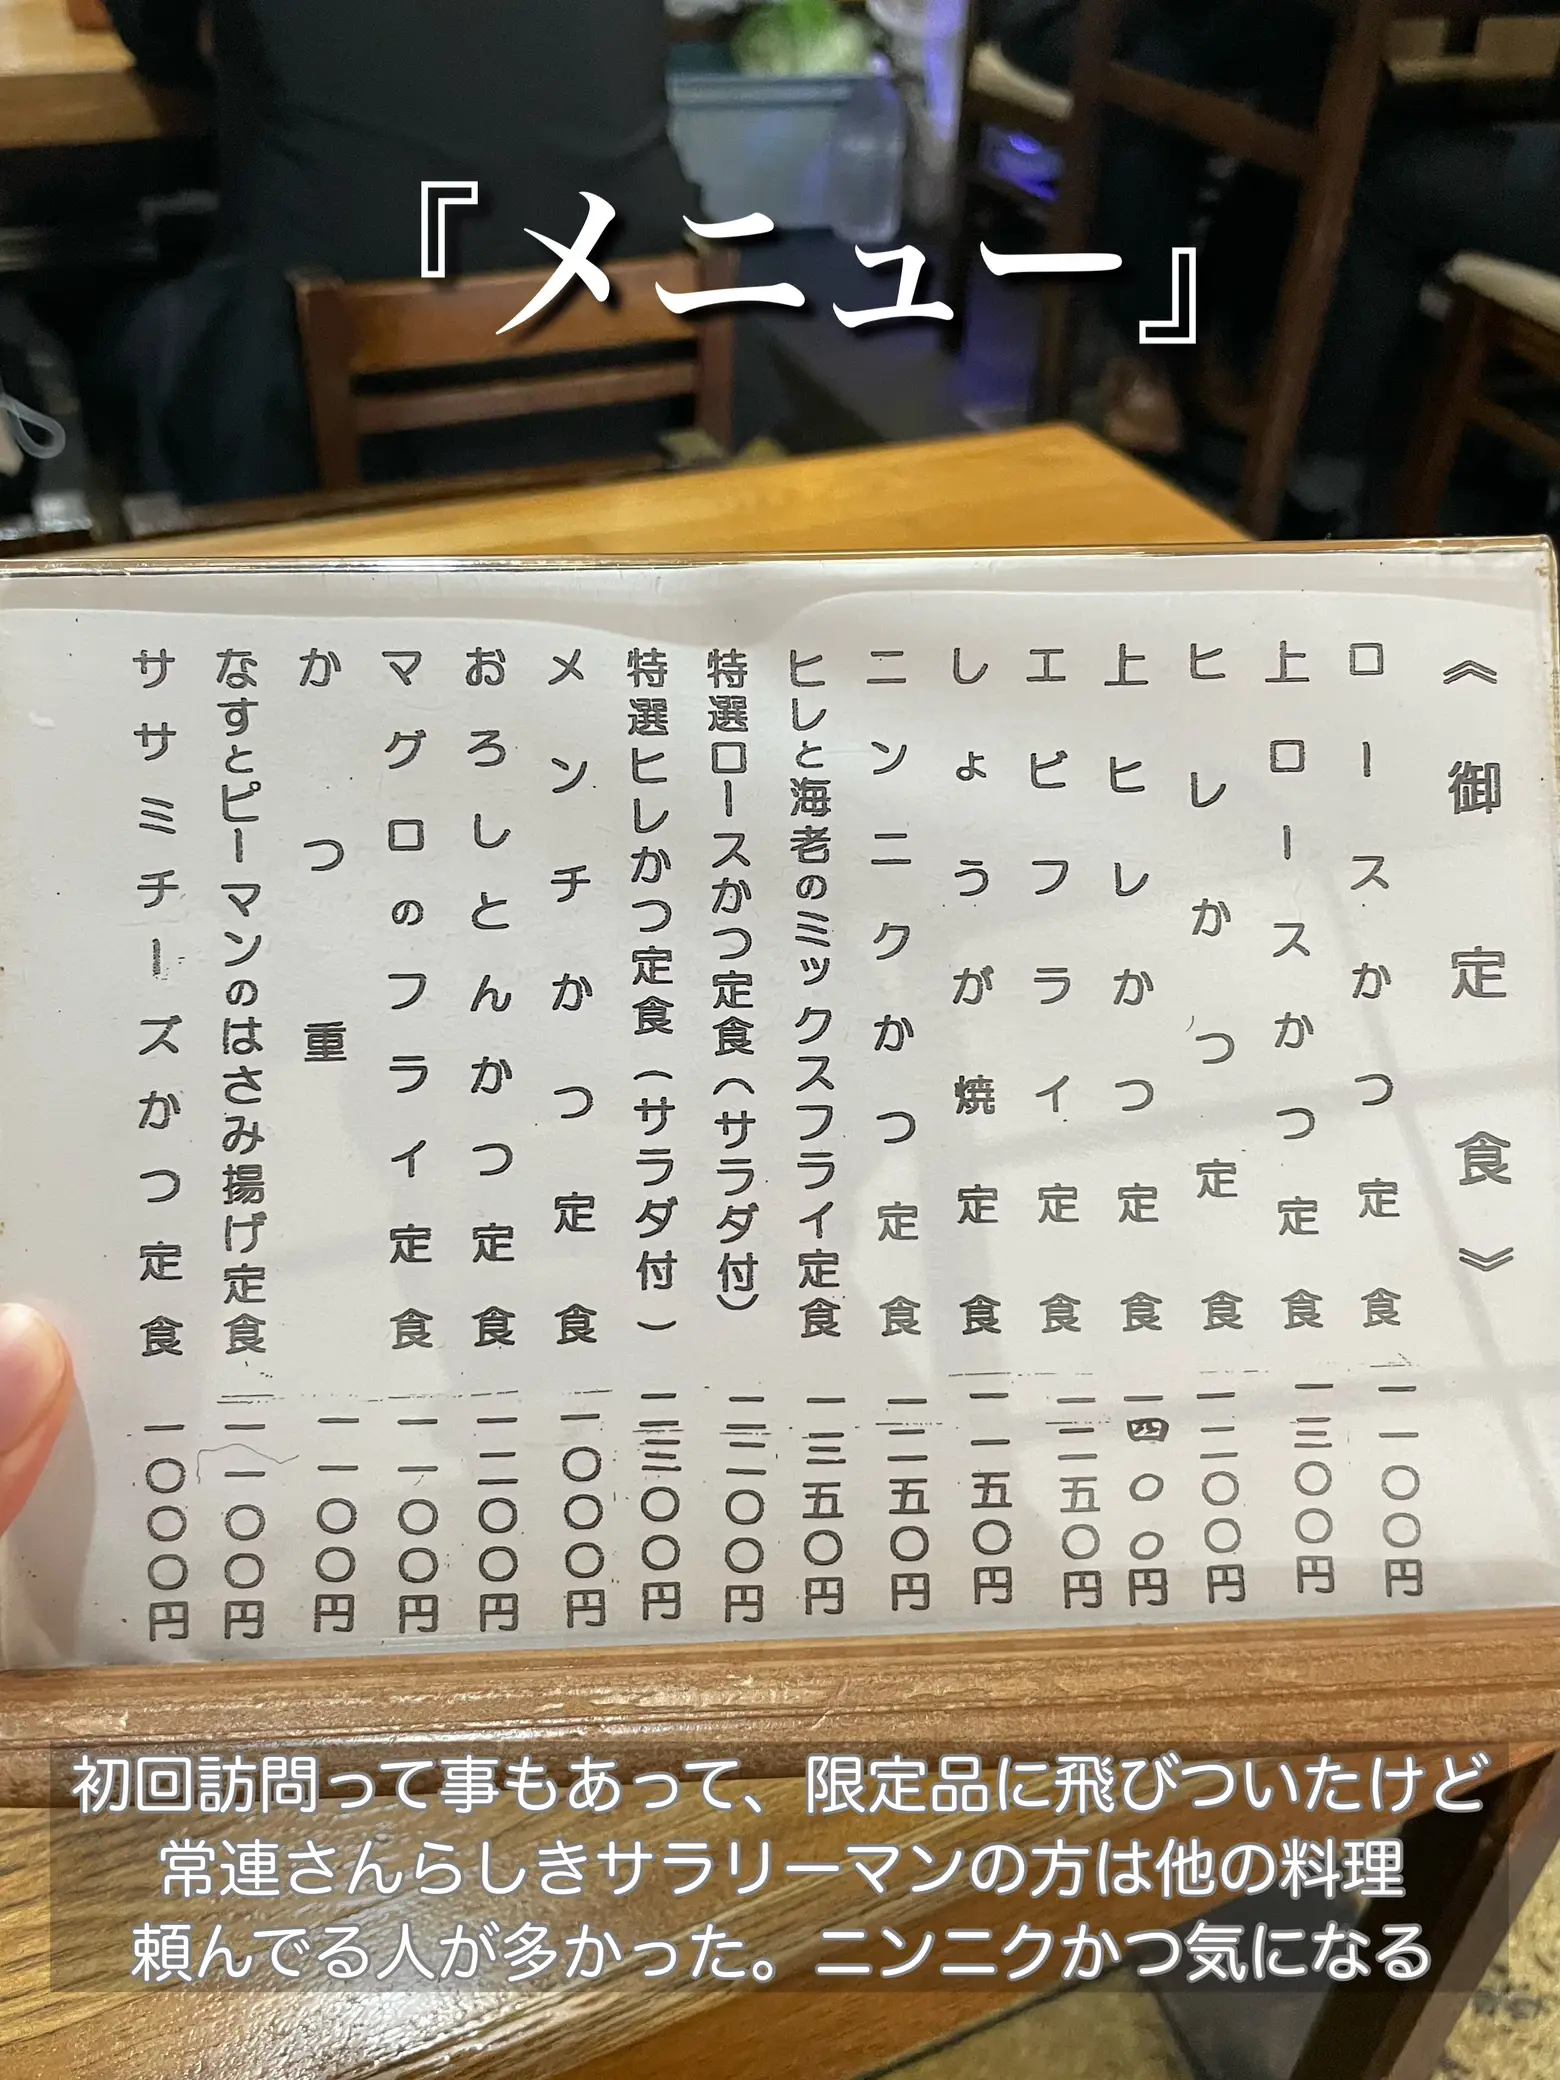 『メニュー』
《御定食》
ロースかつ定食 一一〇〇円
上ロースかつ定食 一三〇〇円
ヒレかつ定食 一二〇〇円
上ヒレかつ定食 一四〇〇円
エビフライ定食 一二五〇円
しょうが焼定食 一一五〇円
ニンニクかつ定食 一二五〇円
ヒレと海老のミックスフライ定食 一三五〇円
特選ロースかつ定食(サラダ付) 二二〇〇円
特選ヒレかつ定食(サラダ付) 二三〇〇円
メンチかつ定食 一〇〇〇円
おろしとんかつ定食 一二〇〇円
マグロのフライ定食 一一〇〇円
かつ重 一一〇〇円
なすとピーマンのはさみ揚げ定食 一一〇〇円
ササミチーズかつ定食 一〇〇〇円
初回訪問って事もあって、限定品に飛びついたけど
常連さんらしきサラリーマンの方は他の料理
頼んでる人が多かった。ニンニクかつ気になる